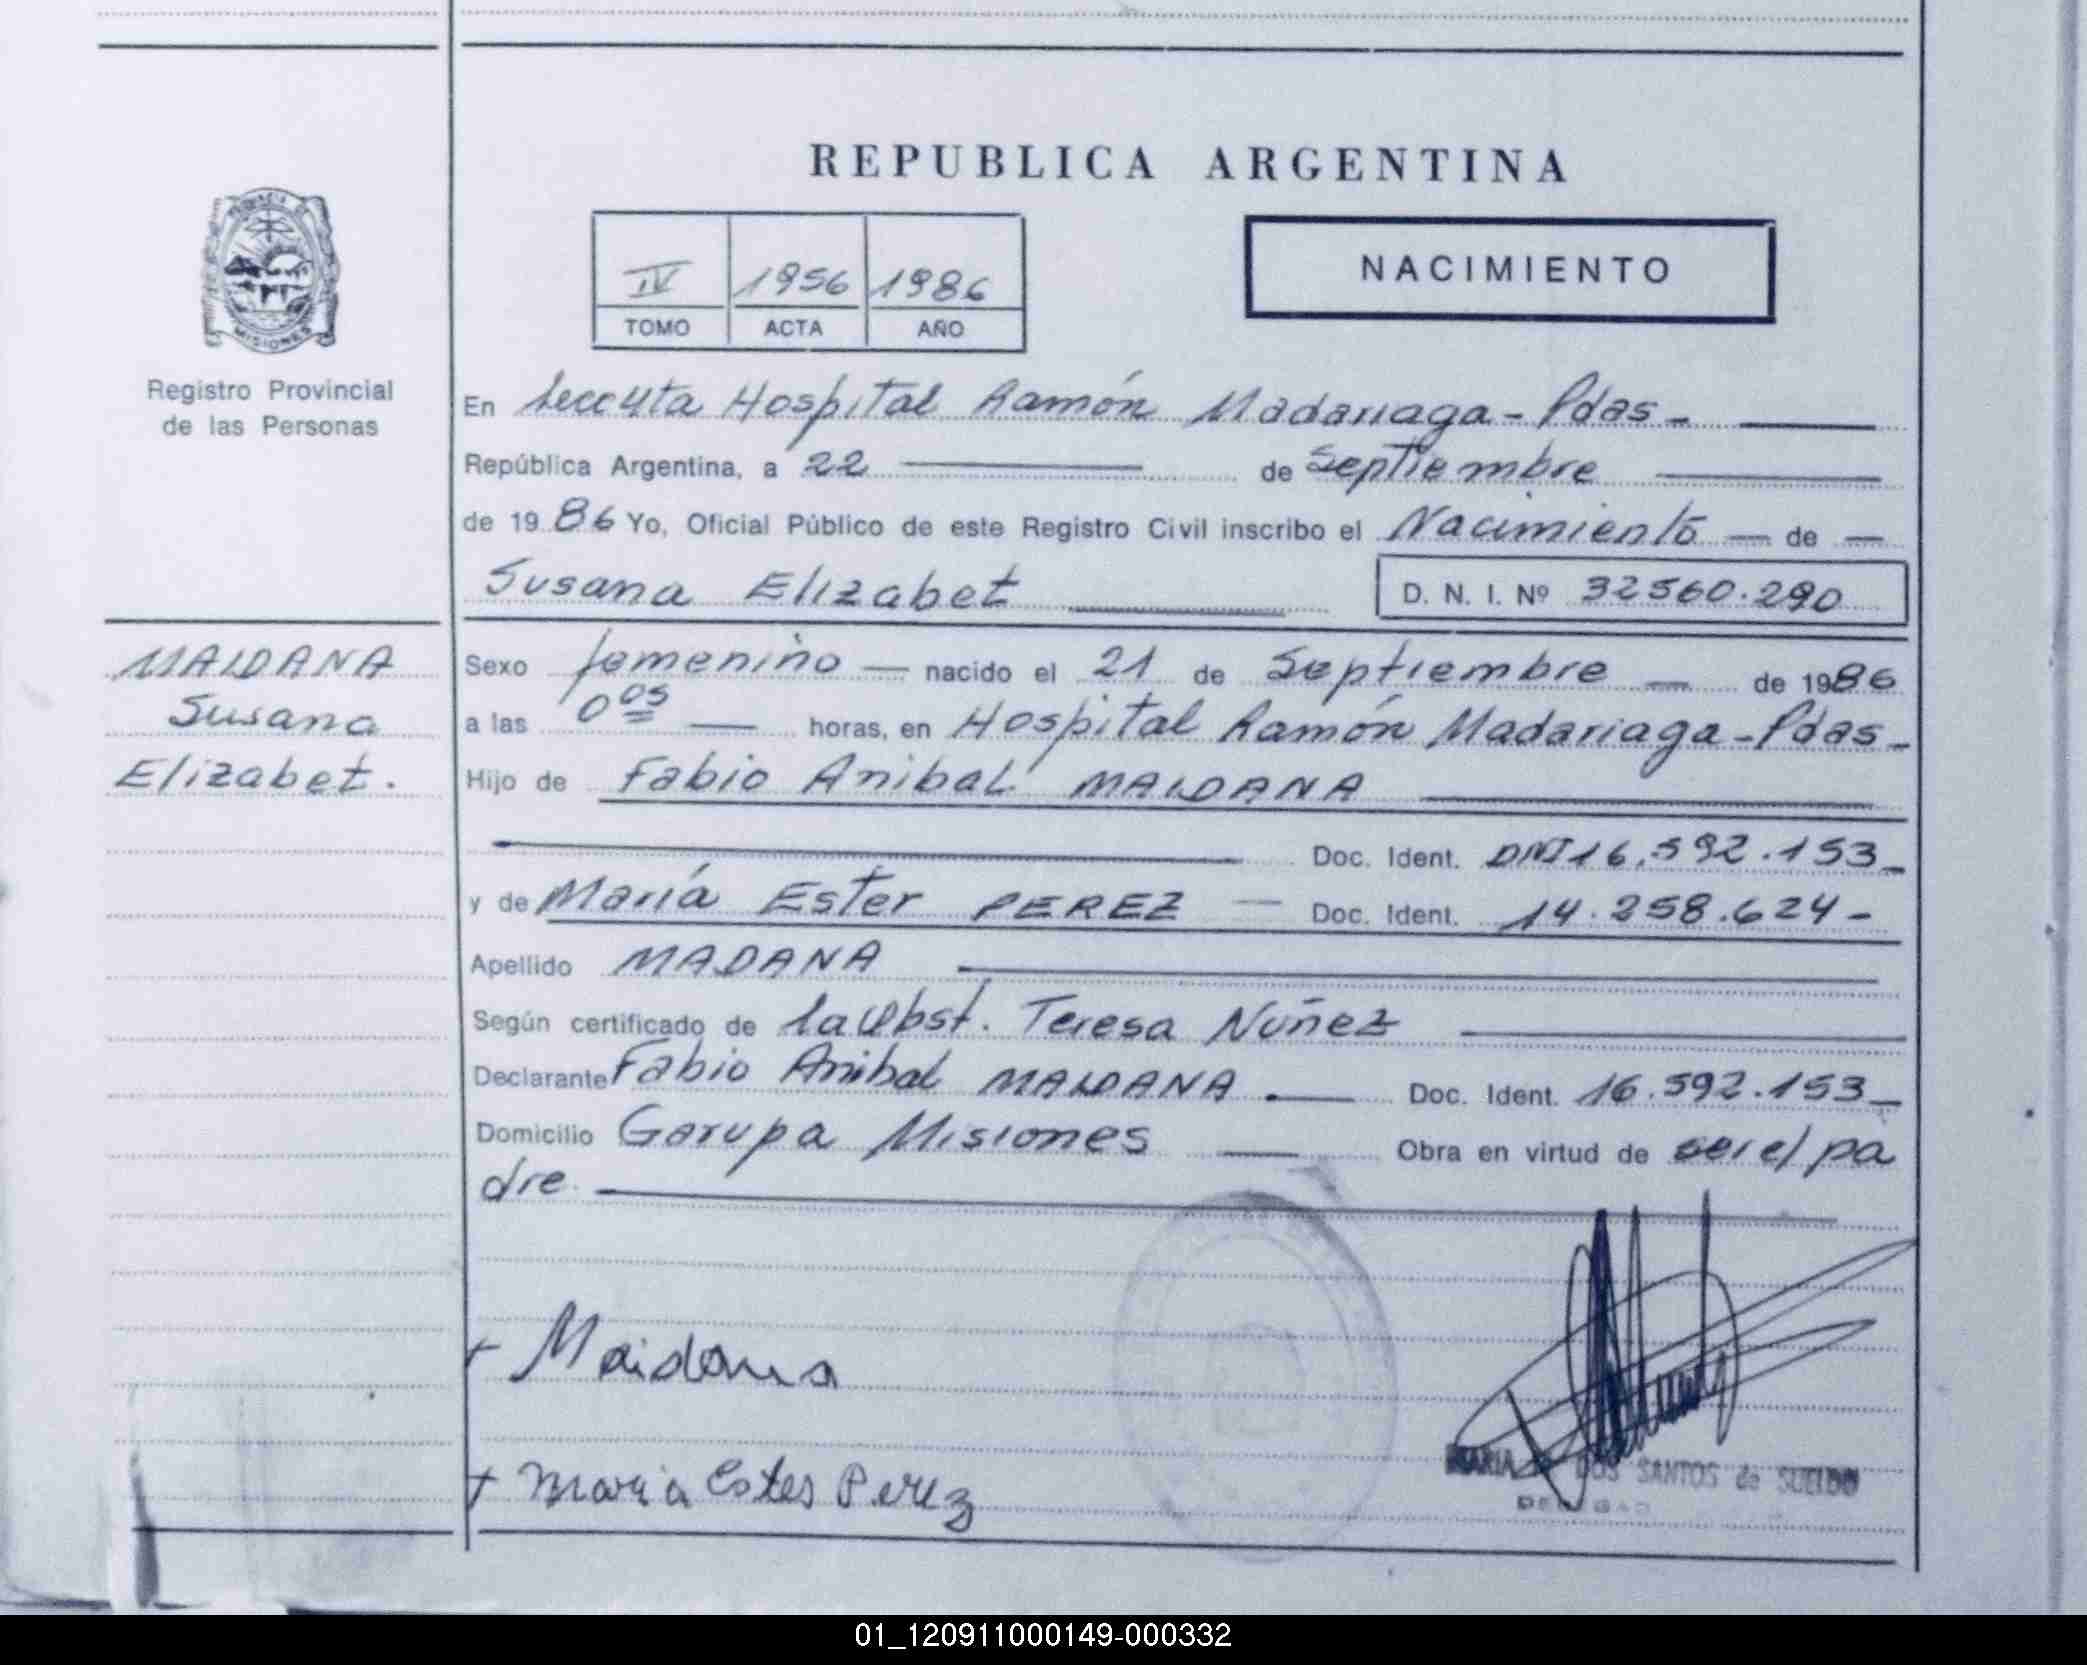 REPUBLICA ARGENTINA
IV 1956 1986
TOMO ACTA AÑO
NACIMIENTO
MISIONES
Registro Provincial
de las Personas
En Seccyta Hospital Ramón Madariaga - Pdas -
República Argentina, a 22 de Septiembre
de 1986 Yo, Oficial Público de este Registro Civil inscribo el Nacimiento de
Susana Elizabet D. N. I. Nº 32560.290
MAIDANA
Susana
Elizabet.
Sexo femenino nacido el 21 de Septiembre de 1986
a las 0 05 horas, en Hospital Ramón Madariaga - Pdas -
Hijo de Fabio Anibal MAIDANA
Doc. Ident. DNI 16.592.153
y de María Ester PEREZ Doc. Ident. 14.258.624 -
Apellido MADANA
Según certificado de la Obst. Teresa Núñez
Declarante Fabio Anibal MAIDANA Doc. Ident. 16.592.153
Domicilio Garupa Misiones Obra en virtud de ser el pa
dre
Maidana
Maria Ester Perez
MARIA DOS SANTOS de SUELDO
01_120911000149-000332